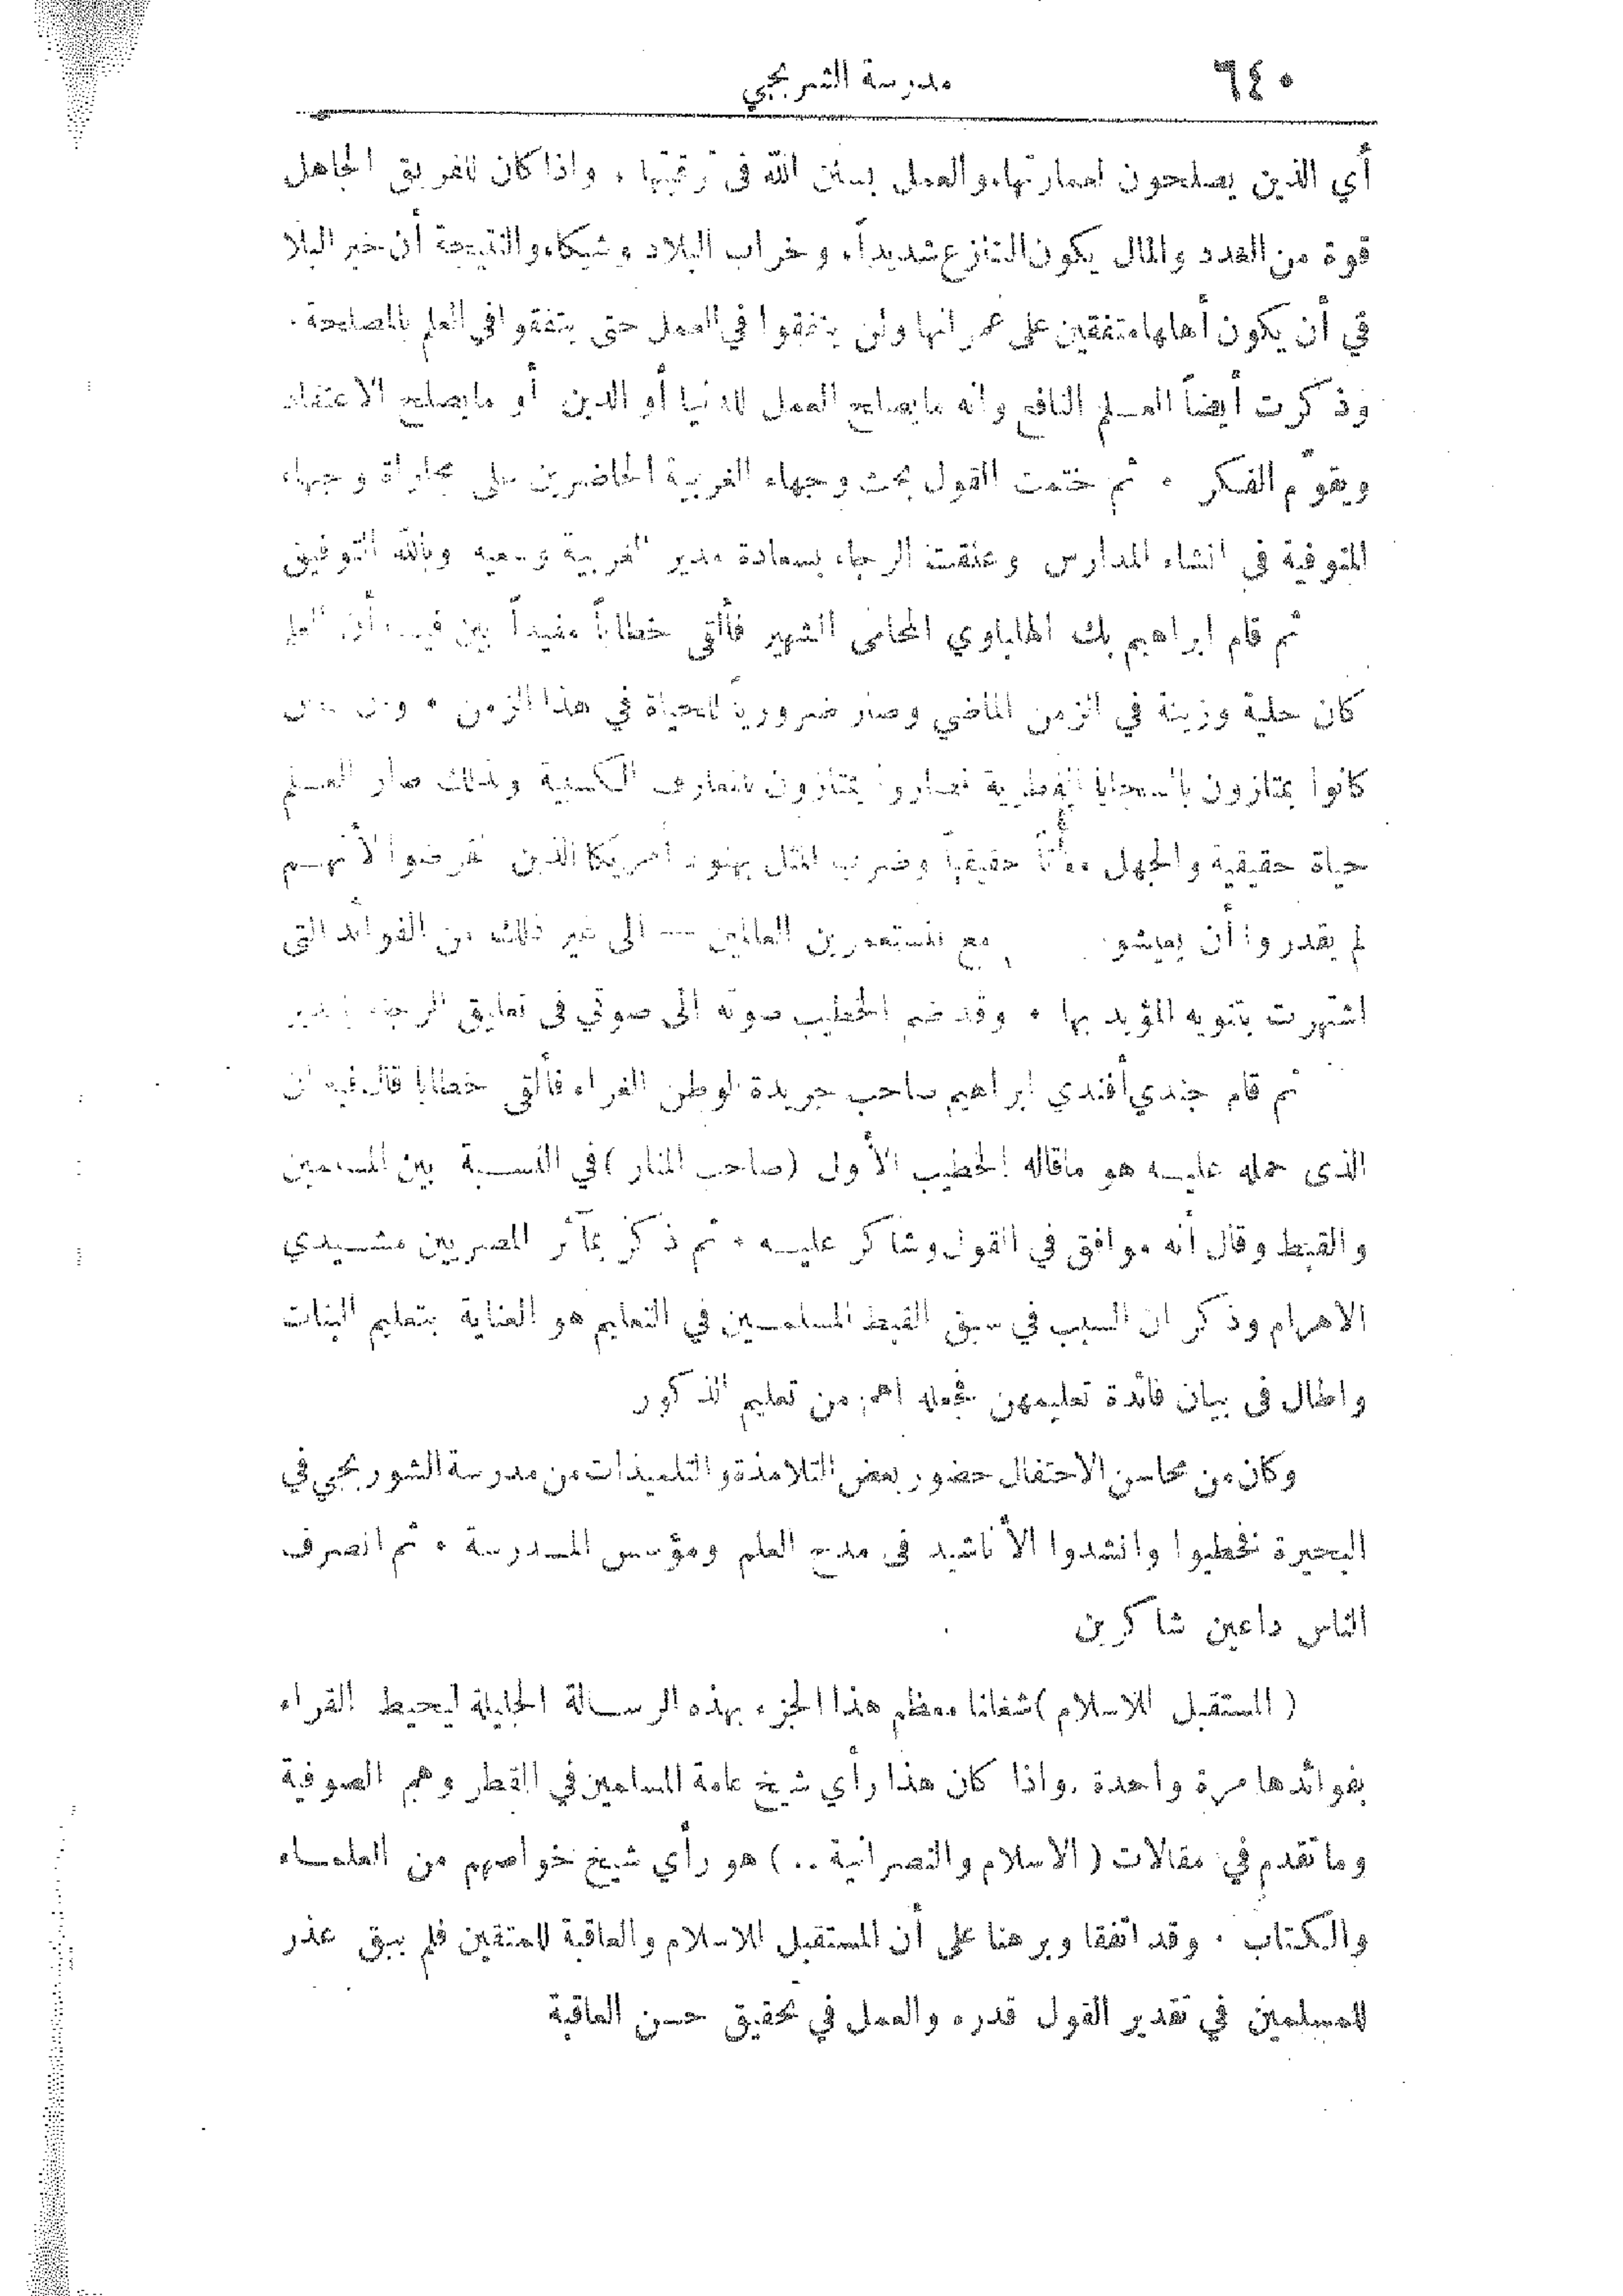 ٦٤٠
مدرسة الشربجي
أي الذين يصلحون لعمارتها، والعمل بسنن الله في ترقيتها. واذا كان للفريق الجاهل
قوة من العدد والمال يكون التنازع شديداً، وخراب البلاد وشيكا، والنتيجة أن خير البلا
في أن يكون أهلها متفقين على عمرانها ولن يتفقوا في العمل حتى يتفقوا في العلم بالمصلحة.
وذكرت أيضاً العلم النافع وانه ما يصلح العمل للدنيا أو الدين أو ما يصلح الاعتقاد
ويقوّم الفكر . ثم ختمت القول بحث وجهاء الغربية الحاضرين على مجاراة وجهاء
المنوفية في انشاء المدارس وعلقت الرجاء بسعادة مدير الغربية وسعيه وبالله التوفيق
ثم قام ابراهيم بك الهلباوي المحامي الشهير فألقى خطاباً مفيداً بين فيه أن العلم
كان حلية وزينة في الزمن الماضي وصار ضرورياً للحياة في هذا الزمن .
كانوا يمتازون بالسجايا الفطرية فصاروا يمتازون بالمعارف الكسبية وبذلك صار العلم
حياة حقيقية والجهل موتاً حقيقياً وضرب المثل بهنود أمريكا الذين انقرضوا لأنهم
لم يقدروا أن يعيشوا مع المستعمرين العالمين — الى غير ذلك من الفوائد التي
اشتهرت بتنويه المؤيد بها . وقد ضم الخطيب صوته الى صوتي في تعليق الرجاء
ثم قام جندي أفندي ابراهيم صاحب جريدة الوطن الغراء فألقى خطابا قال فيه ان
الذي حمله عليه هو ما قاله الخطيب الأول (صاحب المنار) في النسبة بين المسلمين
والقبط وقال أنه موافق في القول وشاكر عليه . ثم ذكر بمآثر المصريين مشيدي
الاهرام وذكر ان السبب في سبق القبط المسلمين في التعليم هو العناية بتعليم البنات
واطال في بيان فائدة تعليمهن فجعله اهم من تعليم الذكور
وكان من محاسن الاحتفال حضور بعض التلامذة والتلميذات من مدرسة الشوربجي في
البحيرة فخطبوا وانشدوا الأناشيد في مدح العلم ومؤسس المدرسة . ثم انصرف
الناس داعين شاكرين
( المستقبل للاسلام ) شغلنا معظم هذا الجزء بهذه الرسالة الجليلة ليحيط القراء
بفوائدها مرة واحدة . واذا كان هذا رأي شيخ عامة المسلمين في القطر وهم الصوفية
وما تقدم في مقالات ( الاسلام والنصرانية . . ) هو رأي شيخ خواصهم من العلماء
والكتاب . وقد اتفقا وبرهنا على أن المستقبل للاسلام والعاقبة للمتقين فلم يبق عذر
للمسلمين في تقدير القول قدره والعمل في تحقيق حسن العاقبة